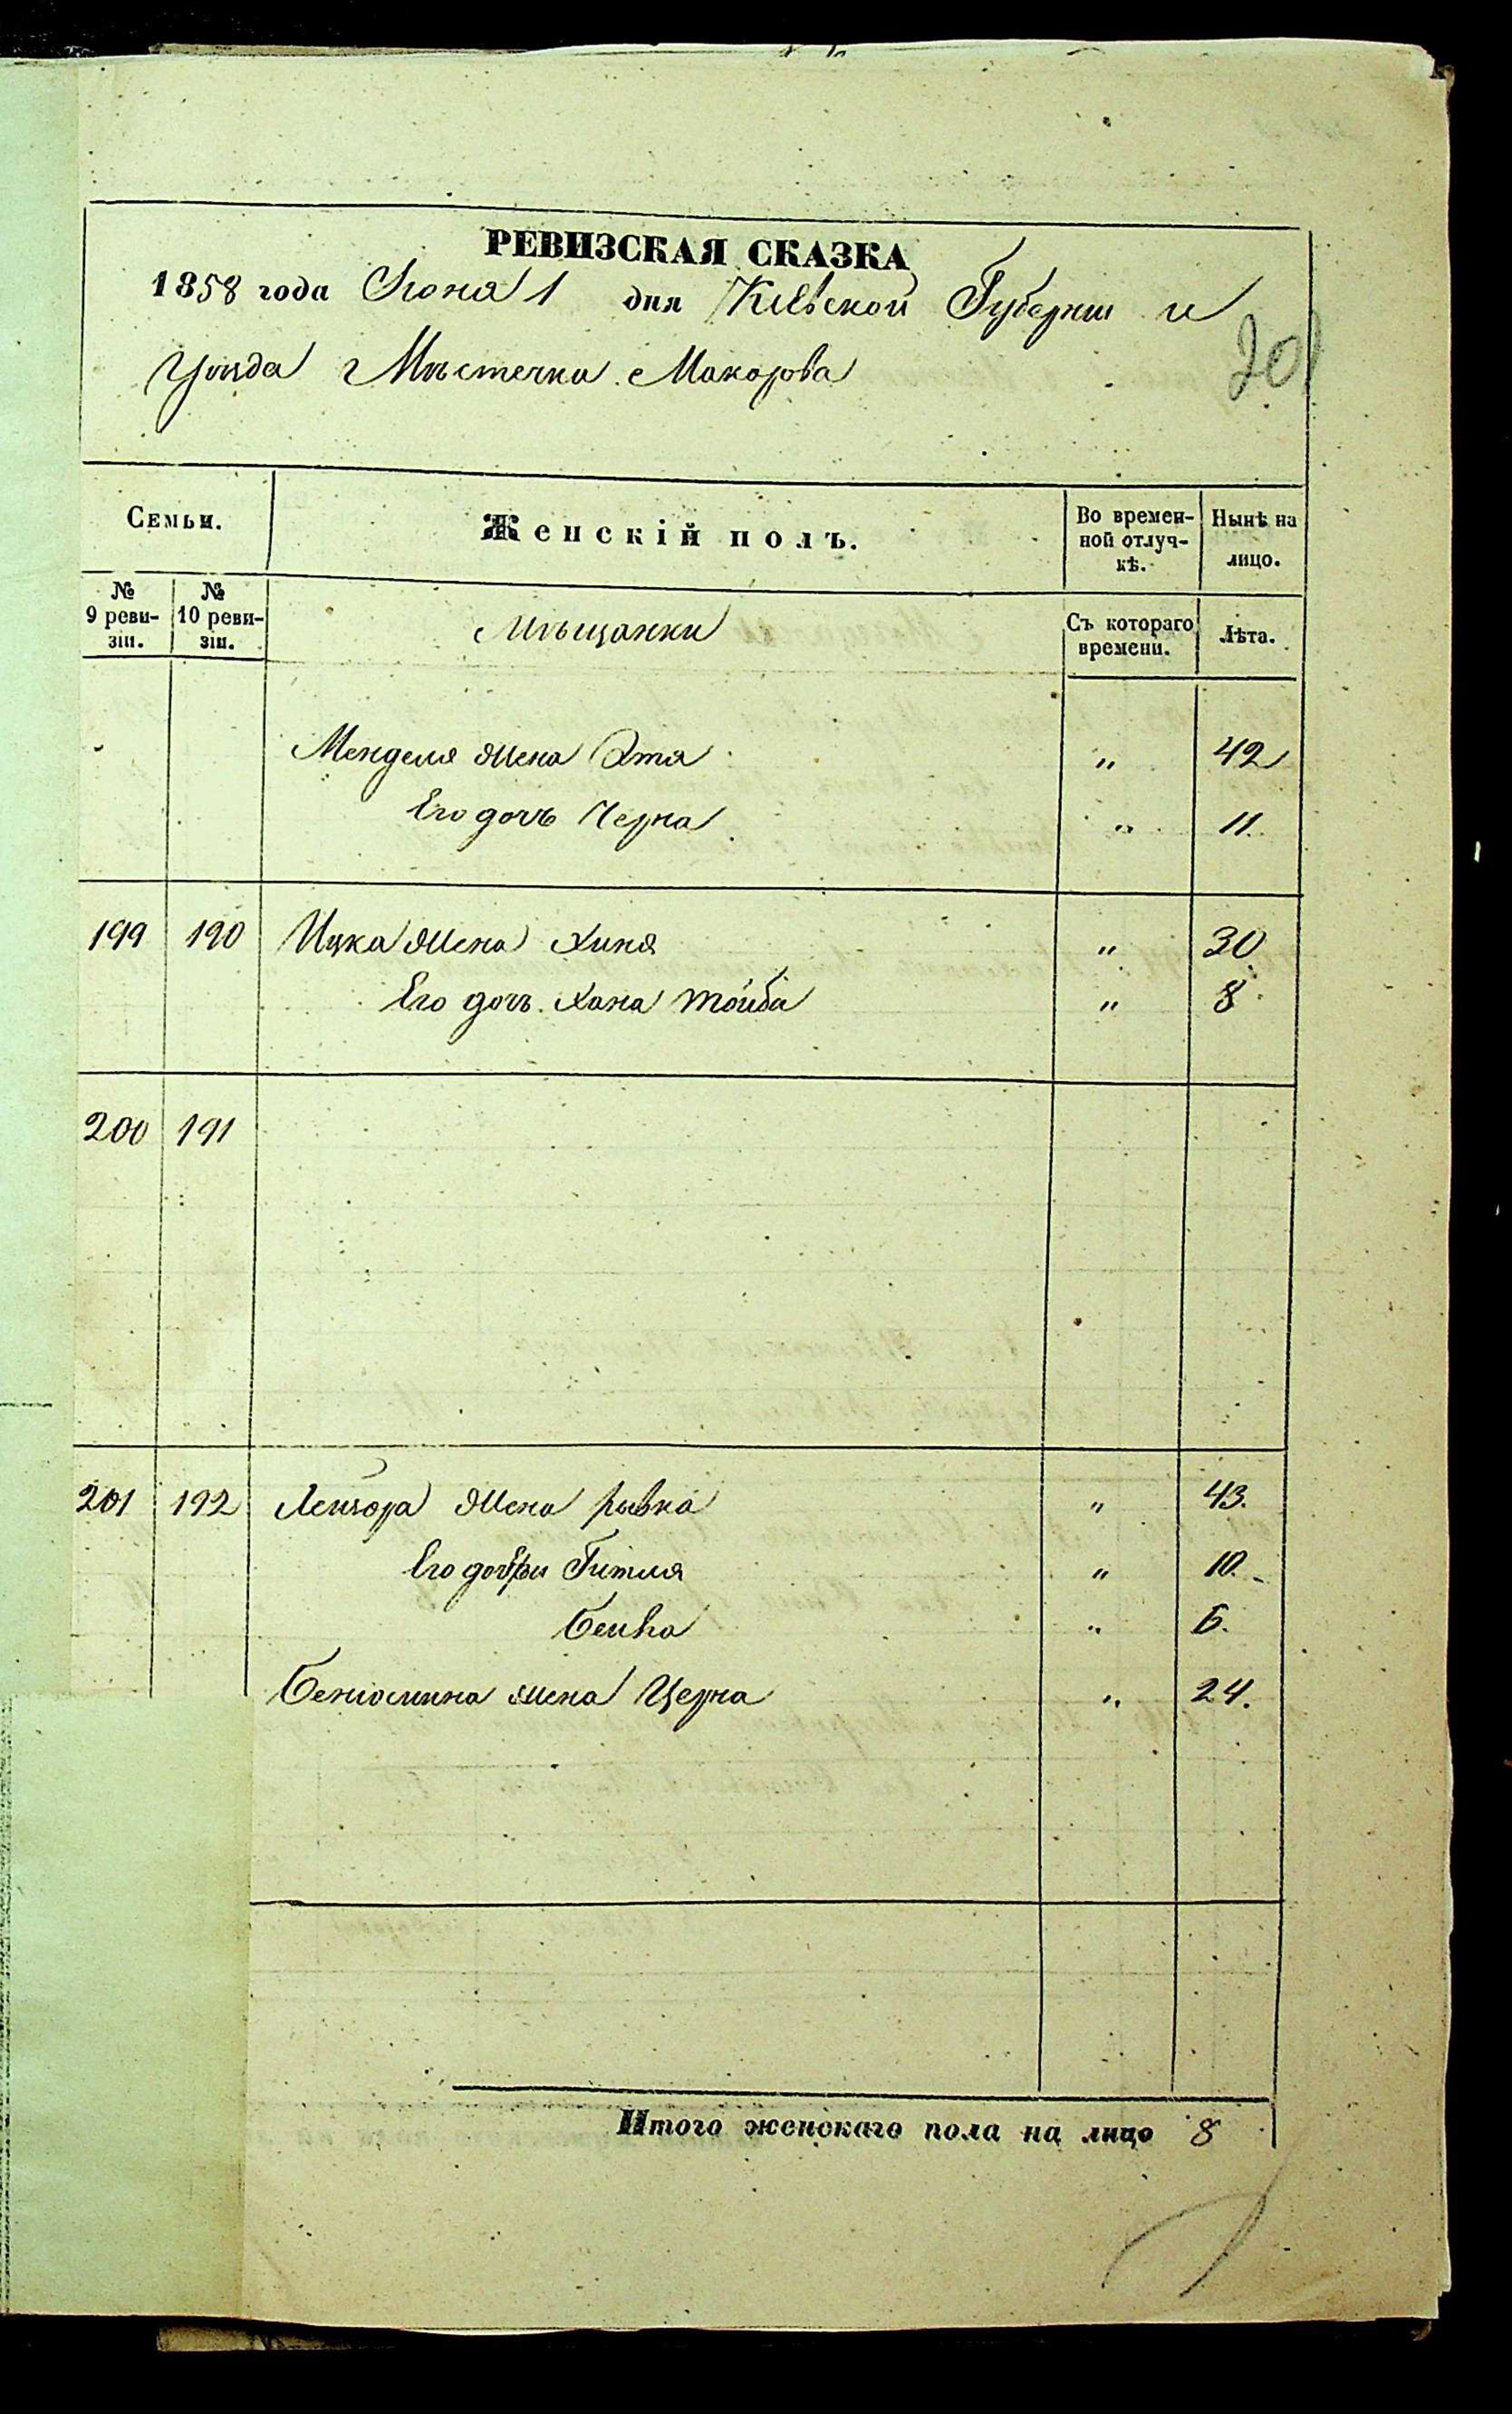 РЕВИЗСКАЯ СКАЗКА
1858 года Июня 1 дня Кіевской Губерніи и
Уѣзда Мѣстечка Макарова
20
Семьи.
Женскій полъ.
Во времен-
ной отлуч-
кѣ.
Нынѣ на
лицо.
№
9 реви-
зіи.
№
10 реви-
зіи.
Мѣщанки
Съ котораго
времени.
Лѣта.
Менделя жена Эта " 42
Его дочь Черна " 11.
199 190 Ицка жена Хиня " 30
Его дочь Хана Тойба " 8
200 191
201 192 Лейзора жена Рывка " 43.
Его дочери Гитля " 10.
Бейла " 6.
Бениомина жена Церна " 24.
Итого женскаго пола на лицо 8